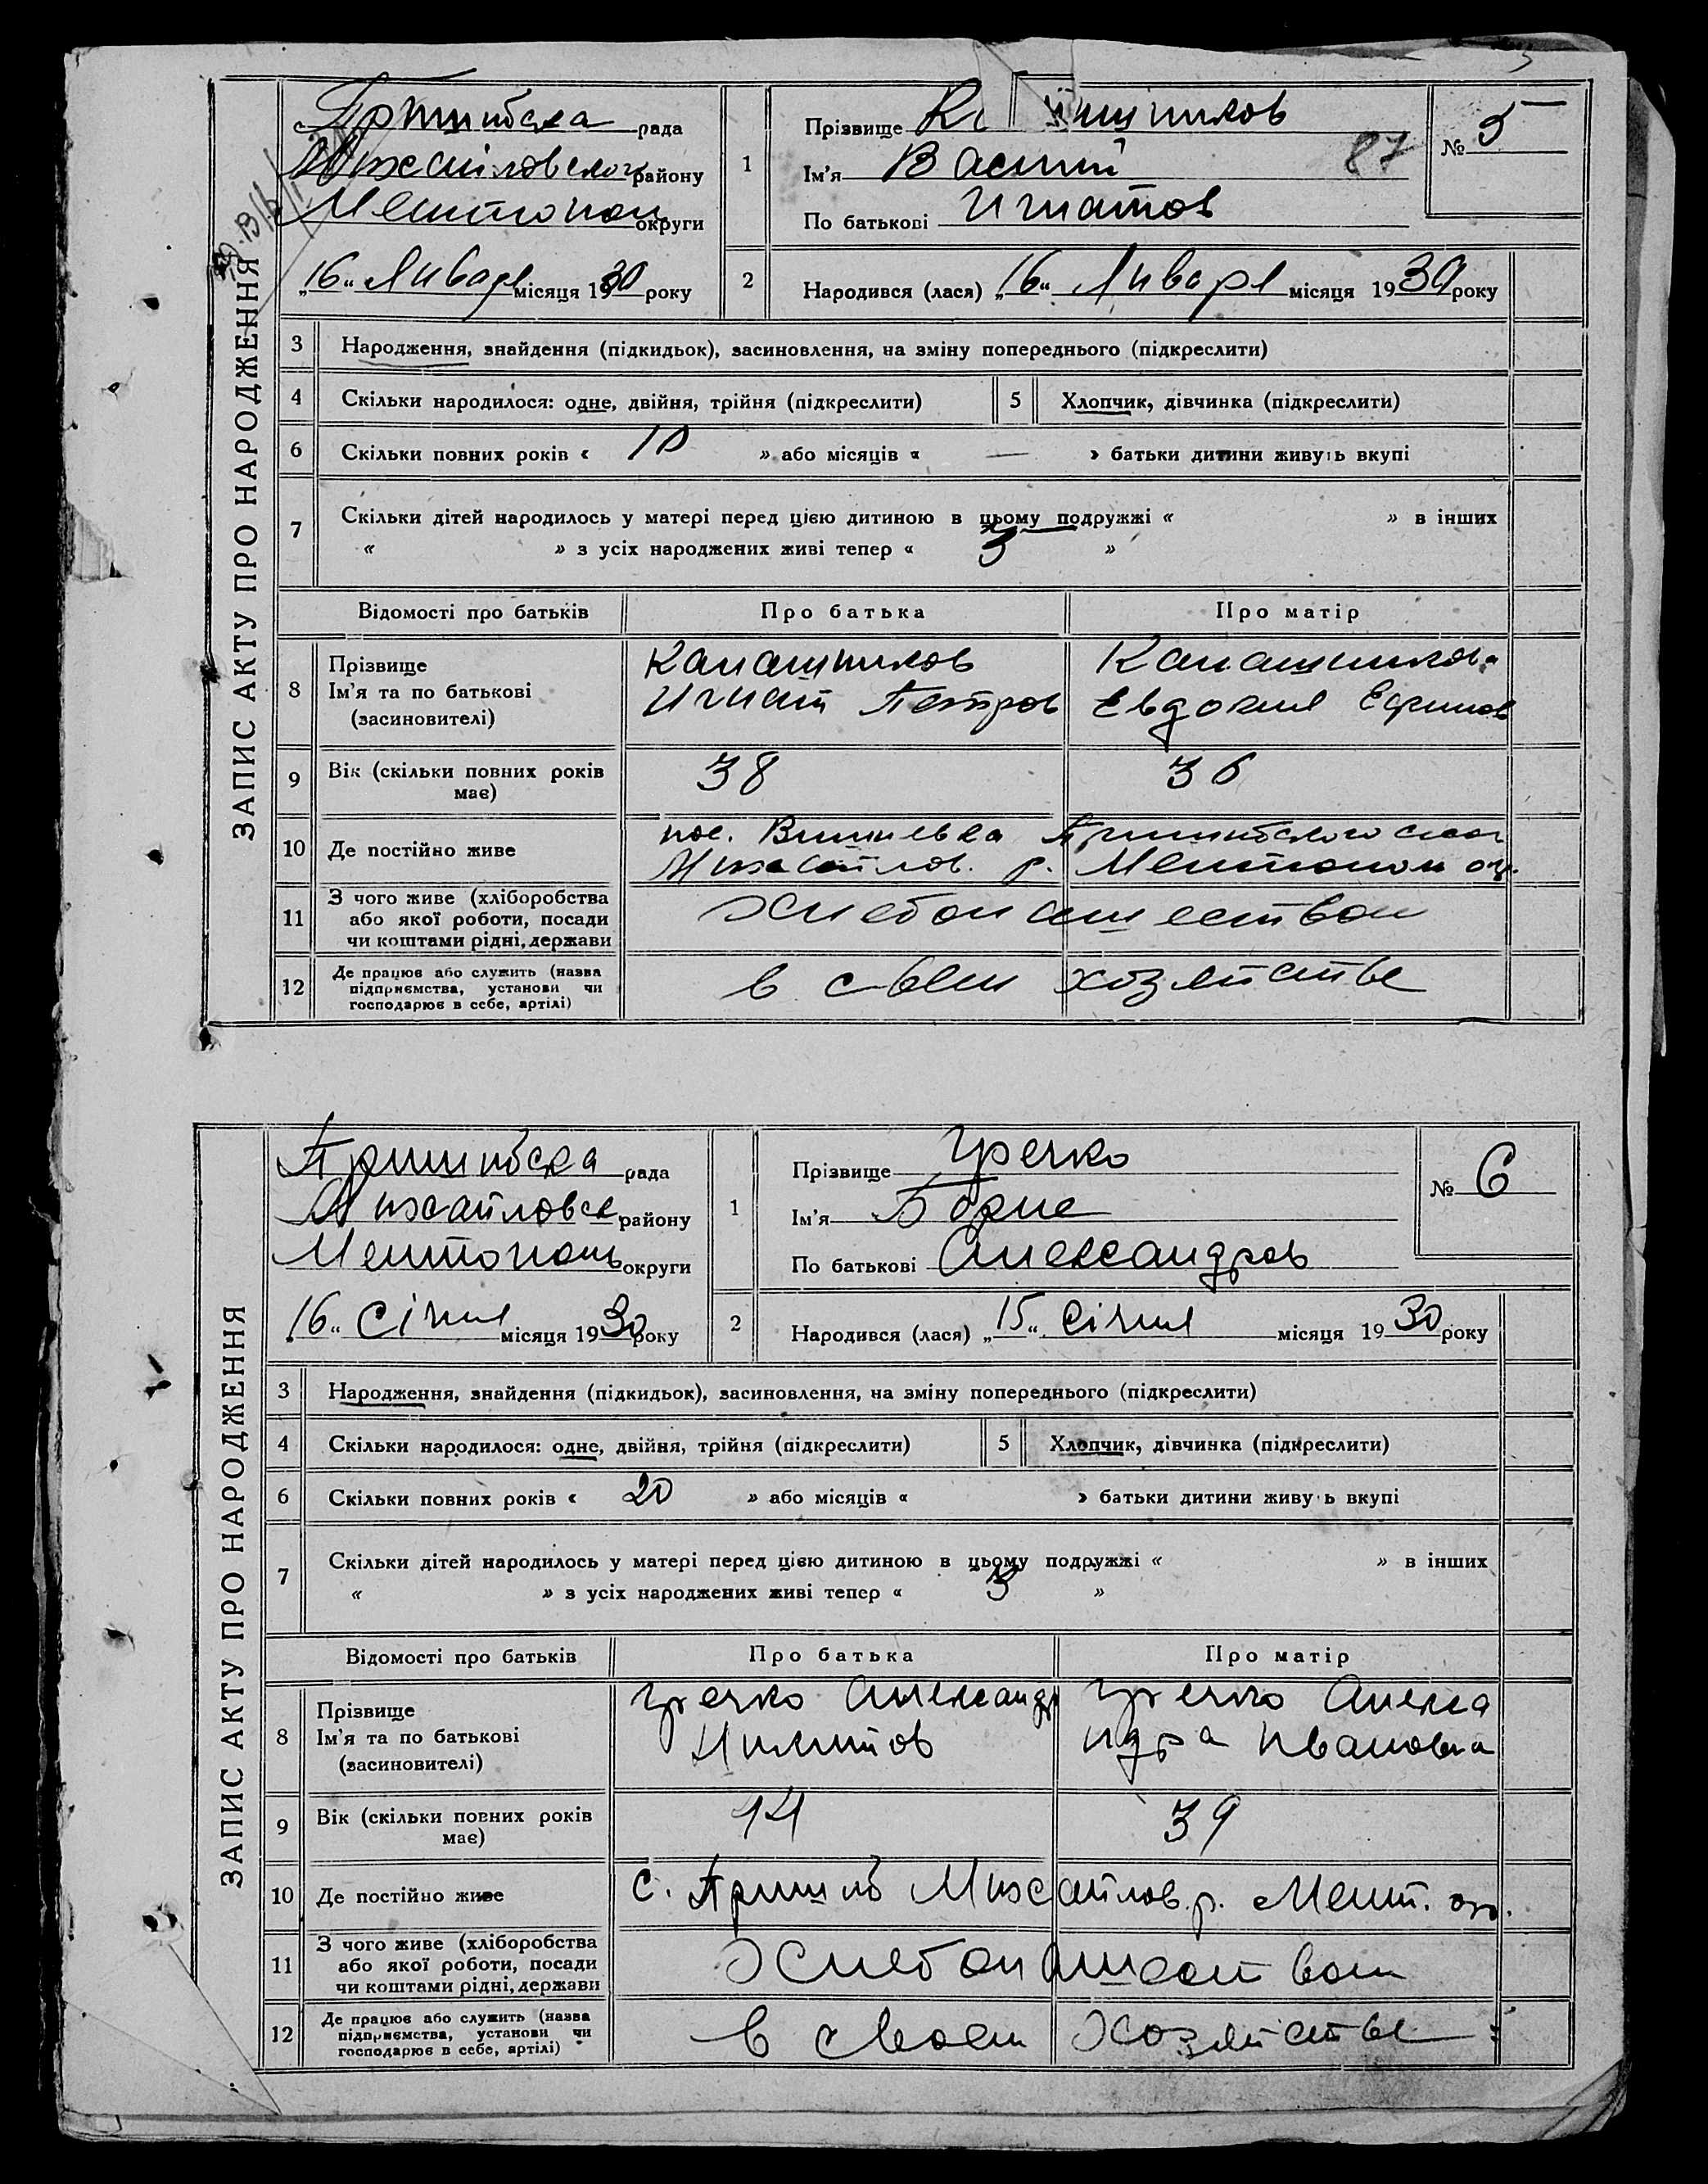 ЗАПИС АКТУ ПРО НАРОДЖЕННЯ
Пришибска рада
Михайловского району
Мелитопол округи
„16“ Январе місяця 1930 року
1
Прізвище
Ім'я Васили
По батькові Игнатов
87
№ 5
2
Народився (лася) „16“ Январе місяця 1930 року
3 Народження, знайдення (підкидьок), засиновлення, на зміну попереднього (підкреслити)
4 Скільки народилося: одне, двійня, трійня (підкреслити)
5 Хлопчик, дівчинка (підкреслити)
6 Скільки повних років « 10 » або місяців « — » батьки дитини живуть вкупі
7 Скільки дітей народилось у матері перед цією дитиною в цьому подружжі « » в інших
« » з усіх народжених живі тепер « 3 »
Відомості про батьків Про батька Про матір
8 Прізвище
Ім'я та по батькові
(засиновителі)
Калашников
Игнат Петров
Калашников.
Евдокия Ефимов
9 Вік (скільки повних років
має)
38 36
10 Де постійно живе
пос. Вишневка Пришибского
Михайлов. р. Мелитопол ок.
11 З чого живе (хліборобства
або якої роботи, посади
чи коштами рідні, держави
Хлебопашеством
12 Де працює або служить (назва
підприємства, установи чи
господарює в себе, артілі)
в своем хозяйстве
ЗАПИС АКТУ ПРО НАРОДЖЕННЯ
Пришибска рада
Михайловск району
Мелитополь округи
„16“ січня місяця 1930 року
1
Прізвище Гречко
Ім'я Борис
По батькові Александров
№ 6
2
Народився (лася) „15“ січня місяця 1930 року
3 Народження, знайдення (підкидьок), засиновлення, на зміну попереднього (підкреслити)
4 Скільки народилося: одне, двійня, трійня (підкреслити)
5 Хлопчик, дівчинка (підкреслити)
6 Скільки повних років « 20 » або місяців « » батьки дитини живуть вкупі
7 Скільки дітей народилось у матері перед цією дитиною в цьому подружжі « » в інших
« » з усіх народжених живі тепер « 3 »
Відомості про батьків Про батька Про матір
8 Прізвище
Ім'я та по батькові
(засиновителі)
Гречко Александр
Никитов
Гречко Алекса
ндра Ивановна
9 Вік (скільки повних років
має)
44 39
10 Де постійно живе
с. Пришиб Михайлов. р. Мелит. ок.
11 З чого живе (хліборобства
або якої роботи, посади
чи коштами рідні, держави
Хлебопашеством
12 Де працює або служить (назва
підприємства, установи чи
господарює в себе, артілі)
в своем Хозяйстве